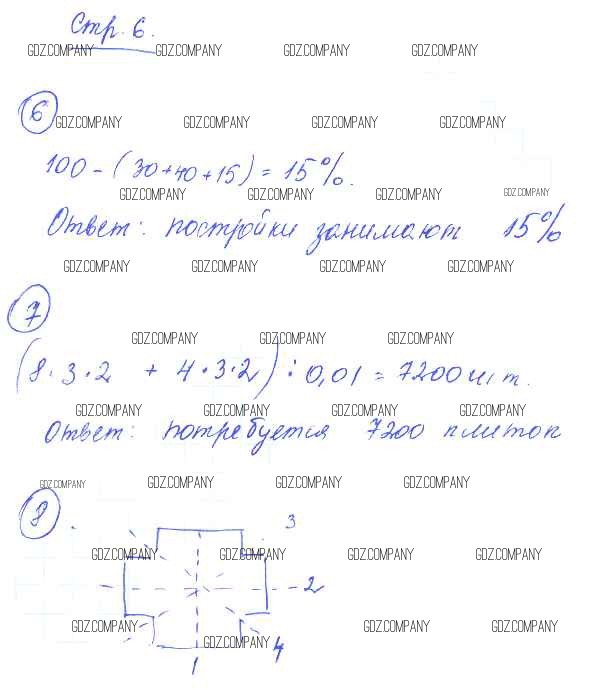 Стр. 6.
GDZ.COMPANY GDZ.COMPANY GDZ.COMPANY GDZ.COMPANY
6 GDZ.COMPANY GDZ.COMPANY GDZ.COMPANY GDZ.COMPANY
100 - (30+40+15) = 15%.
GDZ.COMPANY GDZ.COMPANY GDZ.COMPANY GDZ.COMPANY
Ответ: постройки занимают 15%
GDZ.COMPANY GDZ.COMPANY GDZ.COMPANY GDZ.COMPANY
7
GDZ.COMPANY GDZ.COMPANY GDZ.COMPANY
(8·3·2 + 4·3·2) : 0,01 = 7200 шт.
GDZ.COMPANY GDZ.COMPANY GDZ.COMPANY GDZ.COMPANY
Ответ: потребуется 7200 плиток
GDZ.COMPANY GDZ.COMPANY GDZ.COMPANY GDZ.COMPANY
8
3
GDZ.COMPANY GDZ.COMPANY GDZ.COMPANY GDZ.COMPANY
2
GDZ.COMPANY GDZ.COMPANY GDZ.COMPANY
GDZ.COMPANY 4
1